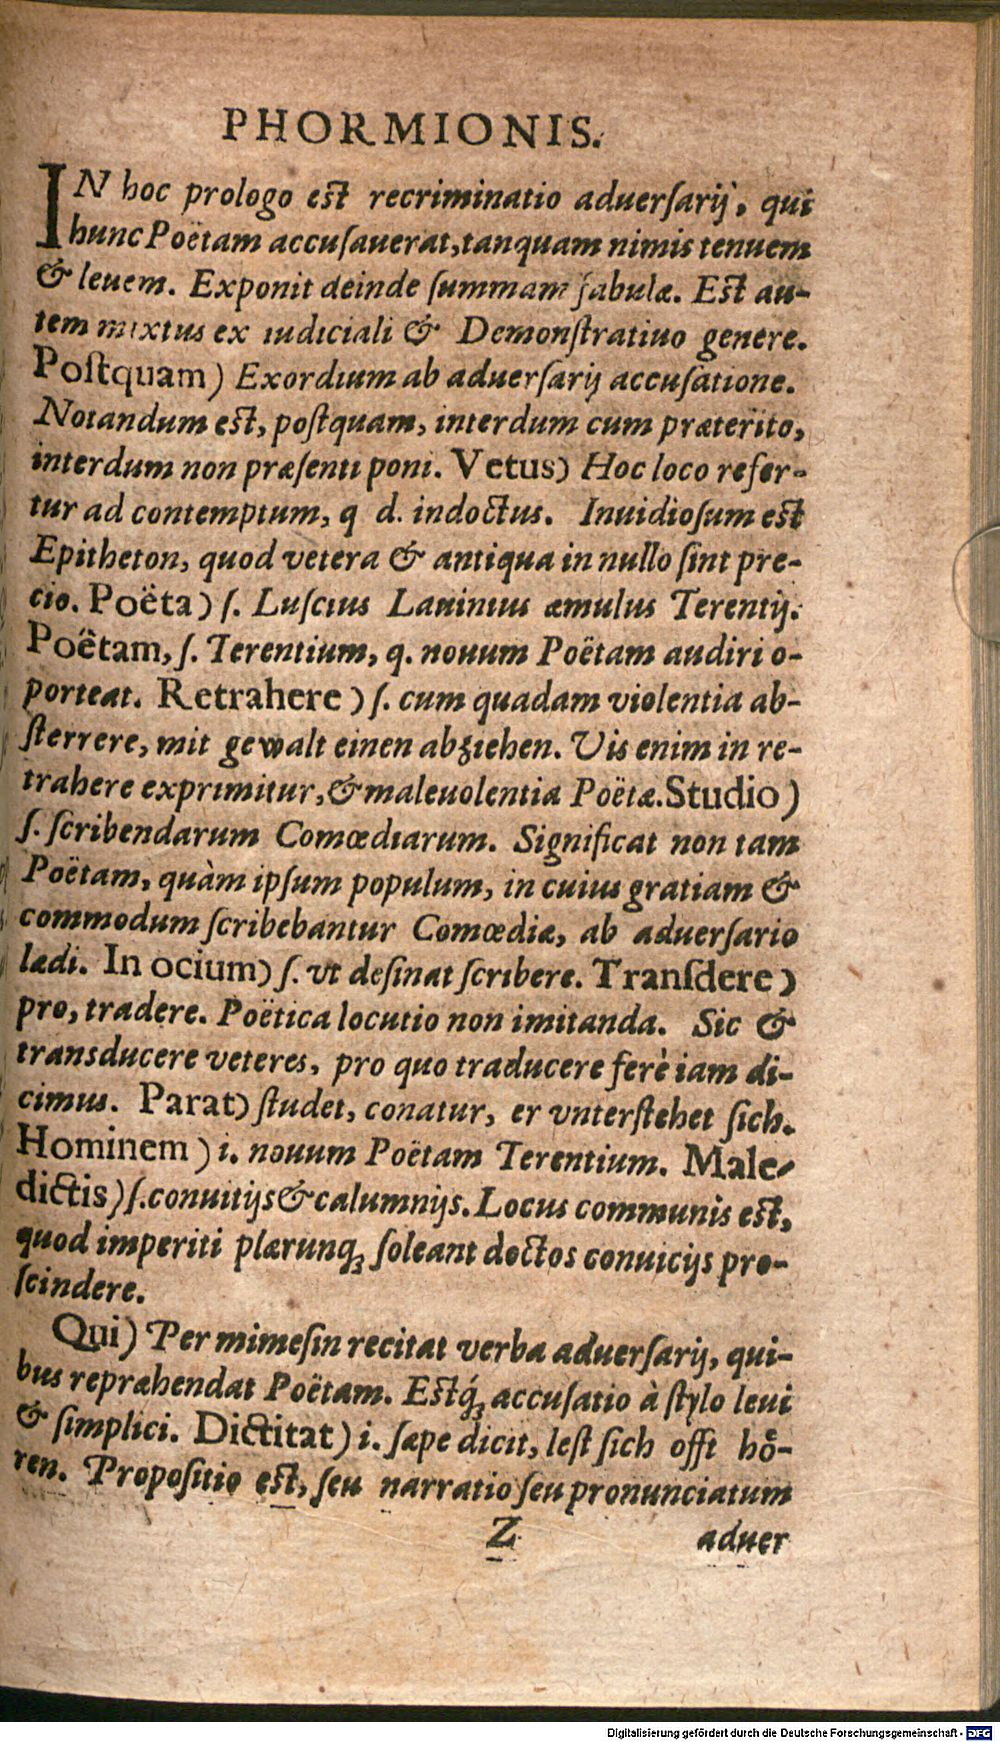 PHORMIONIS.
IN hoc prologo est recriminatio aduerſarij, qui
hunc Poëtam accuſauerat, tanquam nimis tenuem
& leuem. Exponit deinde ſummam fabulæ. Est au-
tem mixtus ex iudiciali & Demonſtratiuo genere.
Poſtquam) Exordium ab aduerſarij accuſatione.
Notandum est, poſtquam, interdum cum præterito,
interdum non præſenti poni. Vetus) Hoc loco refer-
tur ad contemptum, q d. indoctus. Inuidioſum est
Epitheton, quod vetera & antiqua in nullo ſint pre-
cio. Poëta) ſ. Luſcius Lauinius æmulus Terentij.
Poëtam, ſ. Terentium, q. nouum Poëtam audiri o-
porteat. Retrahere) ſ. cum quadam violentia ab-
ſterrere, mit gewalt einen abziehen. Vis enim in re-
trahere exprimitur, & maleuolentia Poëtæ. Studio)
ſ. ſcribendarum Comœdiarum. Significat non tam
Poëtam, quàm ipſum populum, in cuius gratiam &
commodum ſcribebantur Comœdiæ, ab aduerſario
lædi. In ocium) ſ. vt deſinat ſcribere. Tranſdere)
pro, tradere. Poëtica locutio non imitanda. Sic &
transducere veteres, pro quo traducere ferè iam di-
cimus. Parat) ſtudet, conatur, er vnterſtehet ſich.
Hominem) i. nouum Poëtam Terentium. Male-
dictis) ſ. conuitijs & calumnijs. Locus communis est,
quod imperiti plærunq; ſoleant doctos conuicijs pro-
ſcindere.
Qui) Per mimeſin recitat verba aduerſarij, qui-
bus repræhendat Poëtam. Estq́; accuſatio à ſtylo leui
& ſimplici. Dictitat) i. ſæpe dicit, leſt ſich offt hoͤ-
ren. Propoſitio est, ſeu narratio ſeu pronunciatum
Z aduer
Digitalisierung gefördert durch die Deutsche Forschungsgemeinschaft - DFG